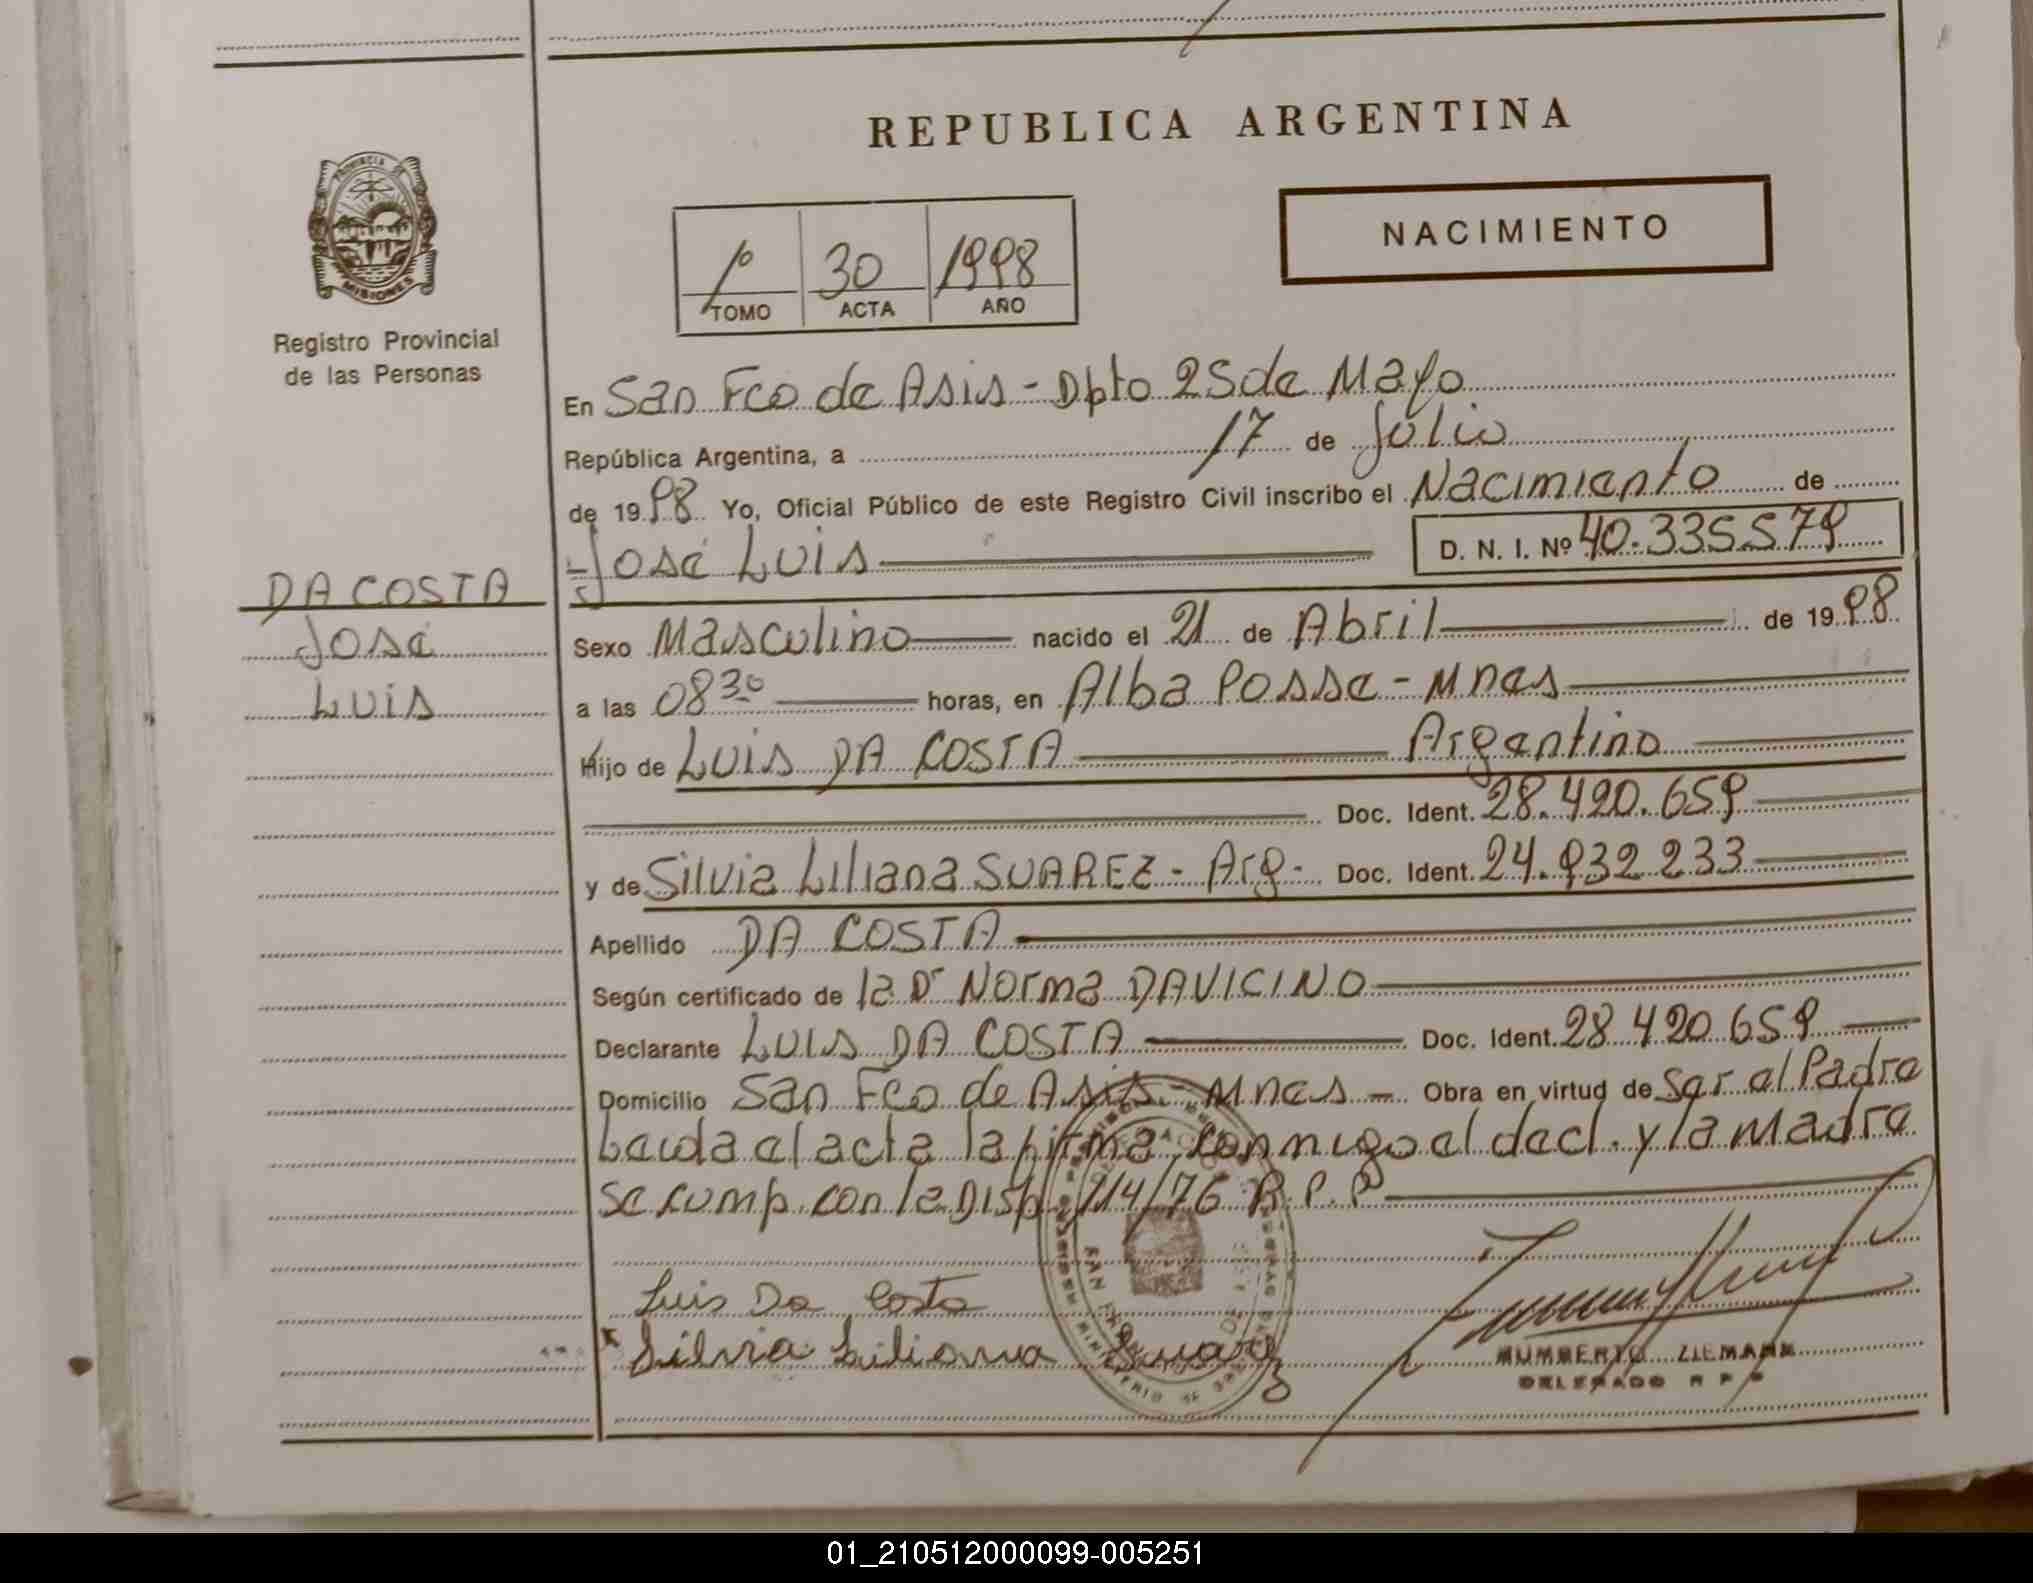 REPUBLICA ARGENTINA
PROVINCIA DE
MISIONES
Registro Provincial
de las Personas
1º 30 1998
TOMO ACTA AÑO
NACIMIENTO
En San Fco de Asis - Dpto 25 de Mayo
República Argentina, a 17 de Julio
de 1998 Yo, Oficial Público de este Registro Civil inscribo el Nacimiento de
José Luis D. N. I. Nº 40.335.579
DA COSTA
José
Luis
Sexo Masculino nacido el 21 de Abril de 1998
a las 08 30 horas, en Alba Posse - Mnes
Hijo de LUIS DA COSTA Argentino
Doc. Ident. 28.420.659
y de Silvia Liliana SUAREZ - Arg - Doc. Ident. 24.932.233
Apellido DA COSTA
Según certificado de la Dr Norma DAVICINO
Declarante LUIS DA COSTA Doc. Ident. 28.420.659
Domicilio San Fco de Asis - Mnes - Obra en virtud de Ser el Padre
Leida el acta la firma conmigo el decl. y la Madre
Se cump. con la Disp 114/76 R.P.P
Luis Da Costa
Silvia Liliana Suarez
HUMBERTO ZIEMANN
DELEGADO R P P
01_210512000099-005251